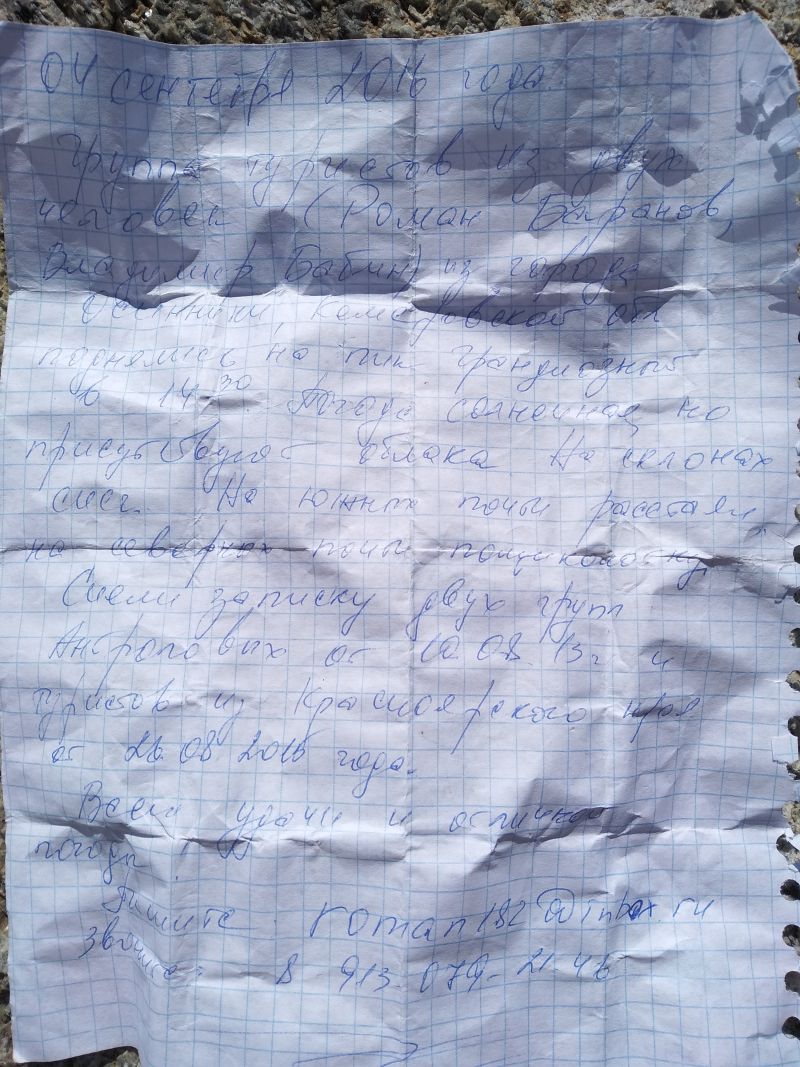 04 сентября 2016 года.
Группа туристов из двух
человек (Роман Баранов,
Владимир Бабин) из города
Осинники, Кемеровской обл
поднялись на пик Грандиозный
в 14:30. Погода солнечная, но
присутствуют облака. На склонах
снег. На южных почти растаял,
на северных почти по щиколотку,
Сняли записку двух групп
Антроповых от 10.08.13г и
туристов из Красноярского края
от 26.08 2015 года.
Всем удачи и отличной
погоды!
Пишите roman182@inbox.ru
звоните: 8 913-079-21-46